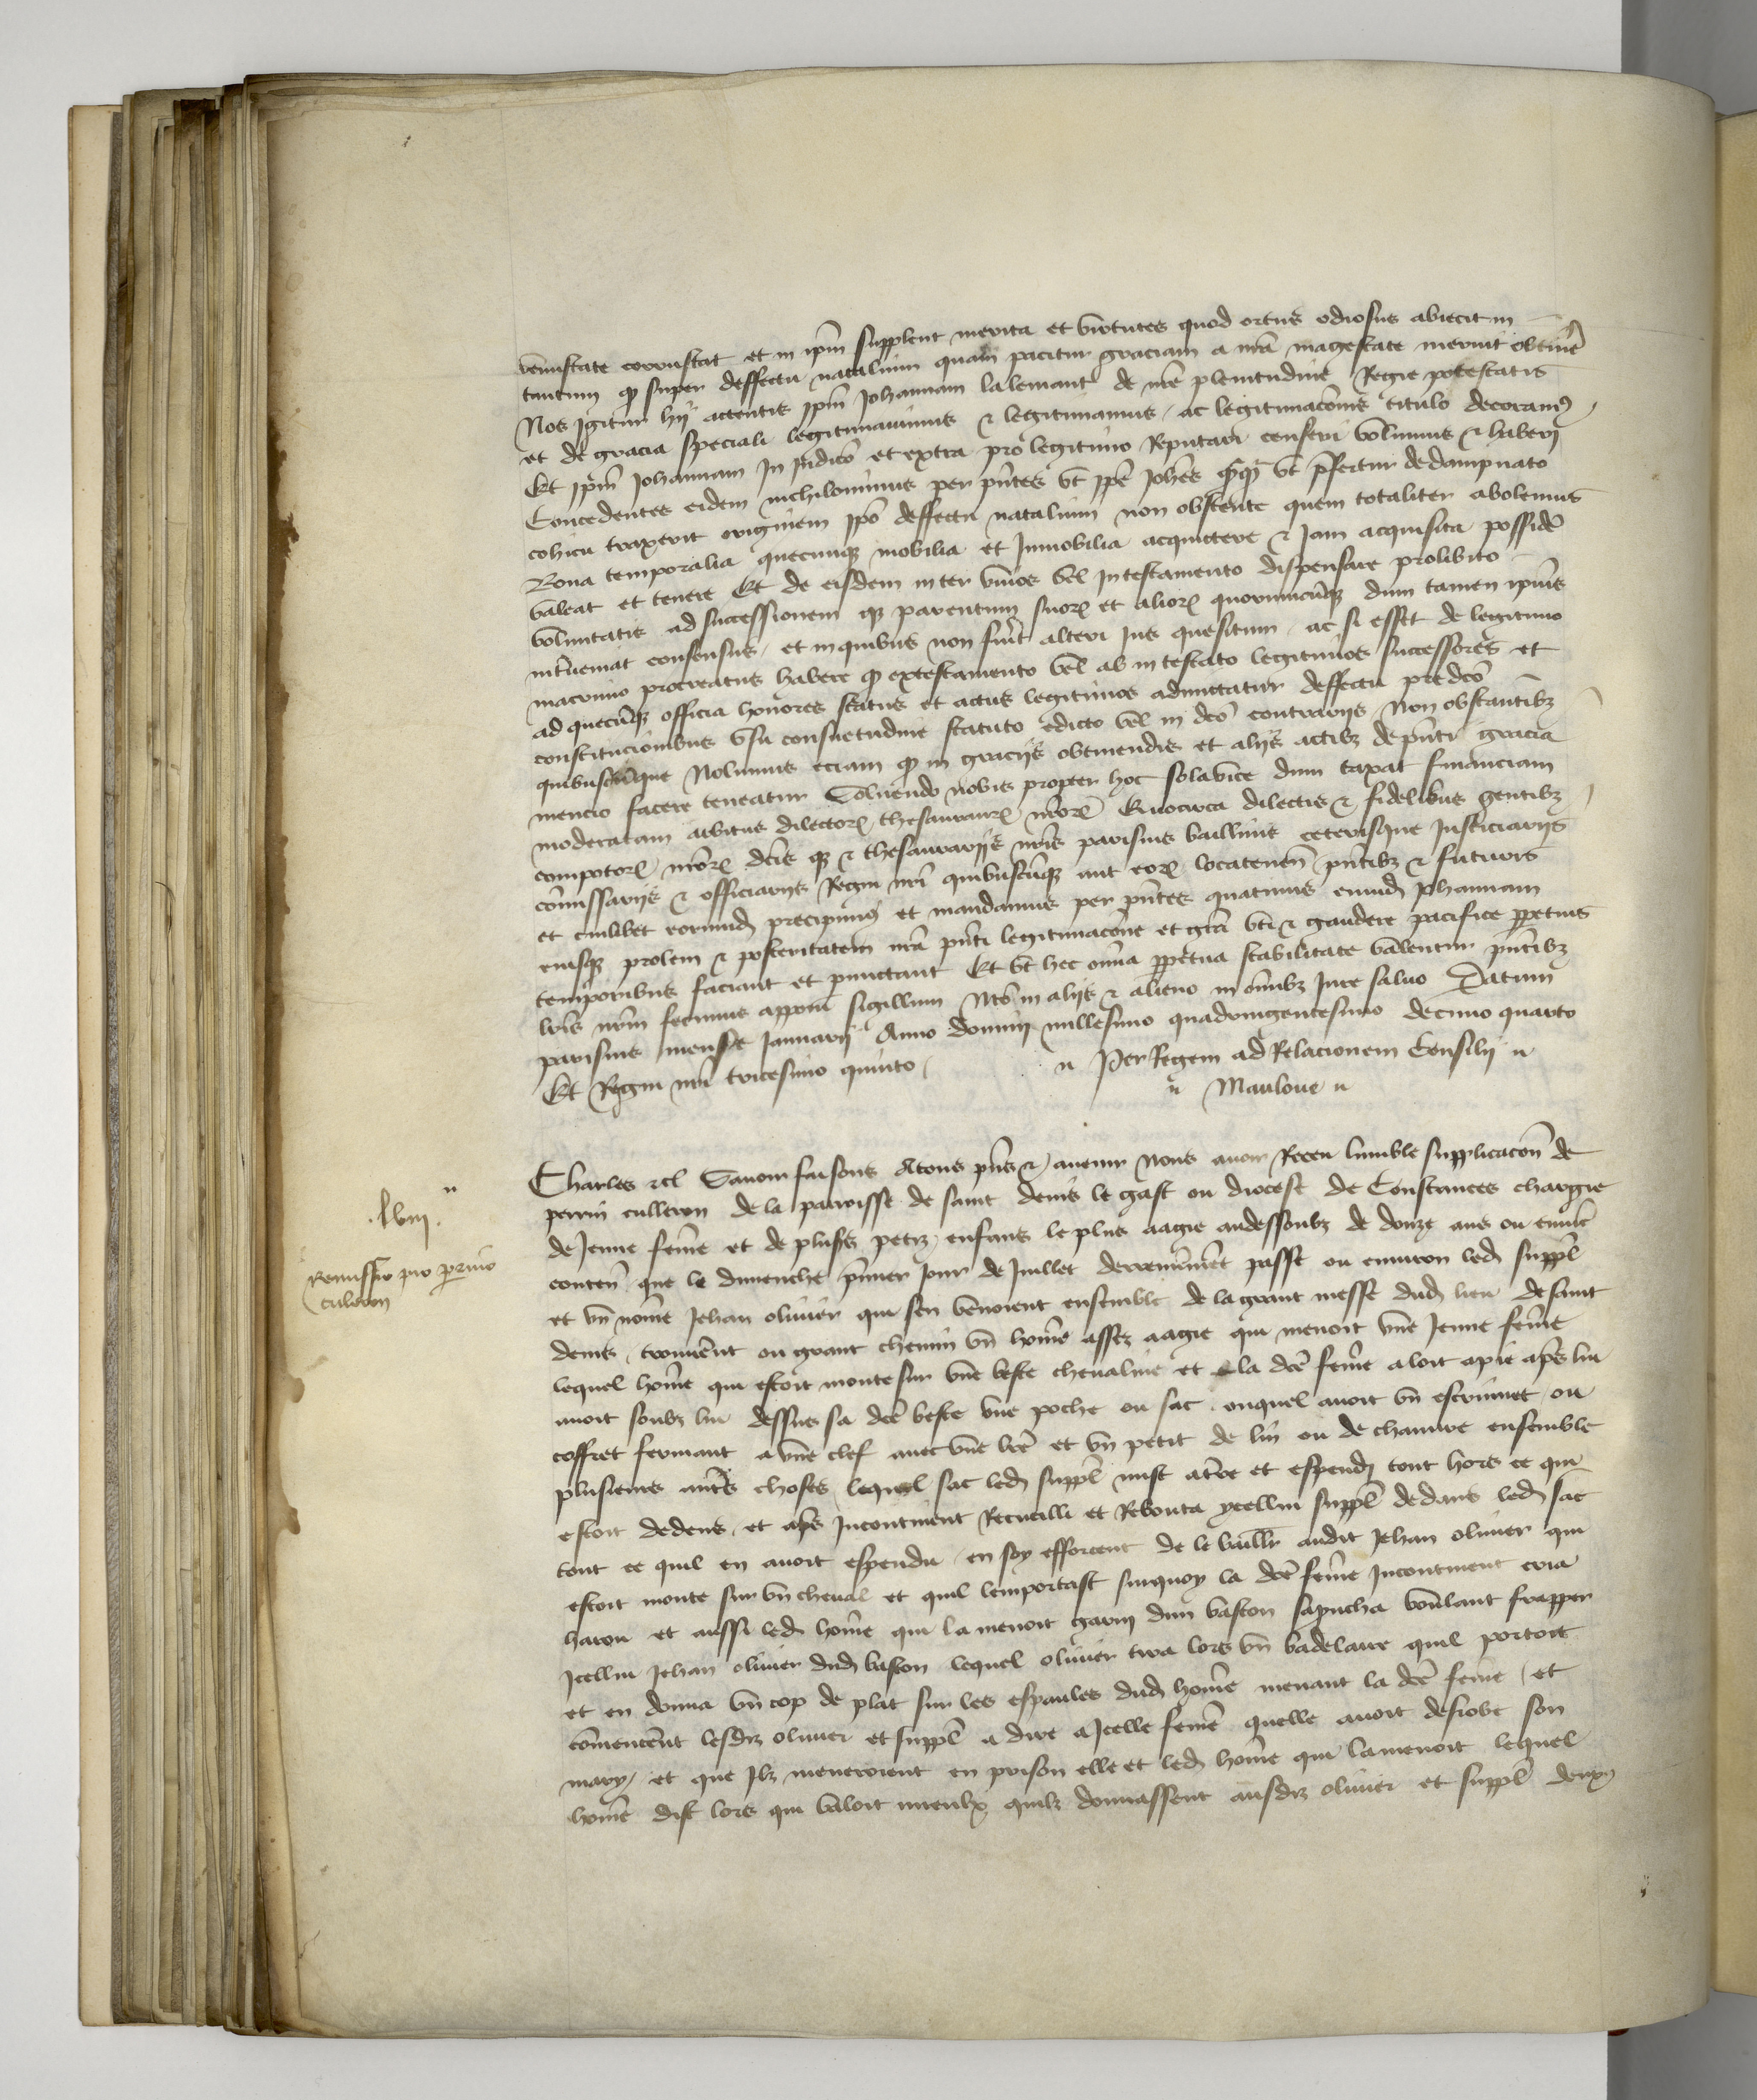 venustate coruscat et in ipm̄ supplent merita et virtutes quod ortus odiosus abiecit in
tantum q̄ super deffectu natalium quam pacitur graciam a nrā magestate meruit obtinē
Nos Igitur hijs actentis Ipm̄ Johannam lalemant de nrē plenitudine Regie potestatis
et de gracia speciali legitimauimus & legitimamus, ac legitimacōnis titulo decoramꝰ
Et Ipm̄ Johannam In Judicō et extra pro legitimo Reputari censeri volumus & haberi
Concedentes eidem nichilominus per pn̄tes vt Ipē Johēs qͣqͣ vt p̄fertur de dampnato
cohitu traxerit originem Ipō deffectu natalium non obstente quem totaliter abolemus
Bona temporalia quecunqꝫ mobilia et Inmobilia acquirere & Iam acquisita possidē
valeat et tenere Et de eisdem inter viuos vel Intestamento dispensare prolibito
voluntatis ad successionem qꝫ parentum suoꝝ et alioꝝ quorumcūqꝫ dum tamen ipius
int̄ueniat consensus, et in quibus non fuīt alteri Ius quesitum, ac si esset de legitimo
matrimo procreatus habere q̄ extestamento vel ab intestato legitimos successores et
ad quecūqꝫ officia honores status et actus legitimos admittatur deffectu predcō
constitucionibus vsu consuetudine statuto edicto vel in dcō contrarijs non obstantibꝫ
quibuscūque Nolumus eciam q̄ in gracijs obtinendis et alijs actibꝫ de pn̄ti gracia
mencio facere teneatur Soluendo nobis propter hoc sola vice dum taxat financiam
moderatam arbitus dilectoꝝ thesaurarioꝝ nr̄oꝝ Quocirca dilectis & fidelibus gentibꝫ
compotoꝝ nr̄oꝝ dcīs qꝫ & thesaurarijs nr̄is parisius bailliuis ceterisque Justiciarijs
cōmissarijs & officiarijs Regni nr̄i quibuscūqꝫ aut eoꝝ locatenen̄ pn̄tibꝫ & futuris
et cuilibet eorumdꝫ precipimꝰ et mandamus per pn̄tes quatinus eumdꝫ Johannam
eiusqꝫ prolem & posteritatem nrā pn̄ti legitimacōne et grā vti & gaudere pacifice ꝑpetuis
temporibus faciant et ꝑmictant Et vt hec om̄ia ꝑpetua stabilitate valentur pn̄tibꝫ
lr̄is nr̄m fecimus apponi sigillum Nr̄o in alijs & alieno in om̄ibꝫ Iure saluo Datum
parisius mense Januarij Anno domini millesimo quadringentesimo decimo quarto
Et Regni nr̄i tricesimo quinto,
Per Regem ad Relacionem Consilij
Mauloue
Charles &c̄ Sauoir faisons Atous pn̄s & auenir Nous auoir Receu lumble supplicacōn de
perrin culleron de la parroisse de saint denis le gast ou diocese de Constances chargie
de Jenne fem̄e et de plusrs petiz enfans le plus aagie audessoubz de douze ans ou enuir̄
conten̄ que le dimenche p̄mier Jour de Juillet derrenierem̄et passe ou enuiron ledꝫ suppl̄
et vn nom̄e Jehan oliuier qui sen venoient ensemble de la grant messe dudꝫ lieu de saint
denis, trouuer̄nt ou grant chemin vn hom̄e assez aagie qui menoit vne Jenne fem̄e
lequel hom̄e qui estoit monte sur vne beste cheualine et la dcē fem̄e aloit apie aprs lui
auoit soubz lui dessus sa dcē beste vne poche ou sac, ouquel auoit vn escrinnet ou
coffret fermant a vne clef auec vne b et vn petit de lin ou de chanure ensemble
plusieurs autrs choses, lequel sac ledꝫ suppl̄ mist atr̄re et espendꝫ tout hors ce qui
estoit dedens, et aps Incontinent Recueilli et Rebouta ycellui suppl̄ dedans ledꝫ sac
tout ce quil en auoit espendu, en soy efforcent de le baillr̄ audit Jehan oliuier qui
estoit monte sur vn cheual et quil lemportast surquoy la dcē fem̄e Incontinent cria
harou et aussi ledꝫ hom̄e qui la menoit garny dun baston sapricha voulant frapper
Icellui Jehan oliuier dudꝫ baston, lequel oliuier tira lors vn badelaire quil portoit
et en donna vn cop de plat sur les espaules dudꝫ hom̄e menant la dcē fem̄e, et
com̄encer̄nt lesdiz oliuier et suppl̄ a dire a Icelle fem̄e quelle auoit desrobe son
mary, et que Ilz meneroient en prison elle et ledꝫ hom̄e qui lamenoit lequel
hom̄e dist lors qui valoit mieulx quilz donnassent ausdiz oliuier et suppl̄ deux
.lviij.
Remissio pro perrino
culeron